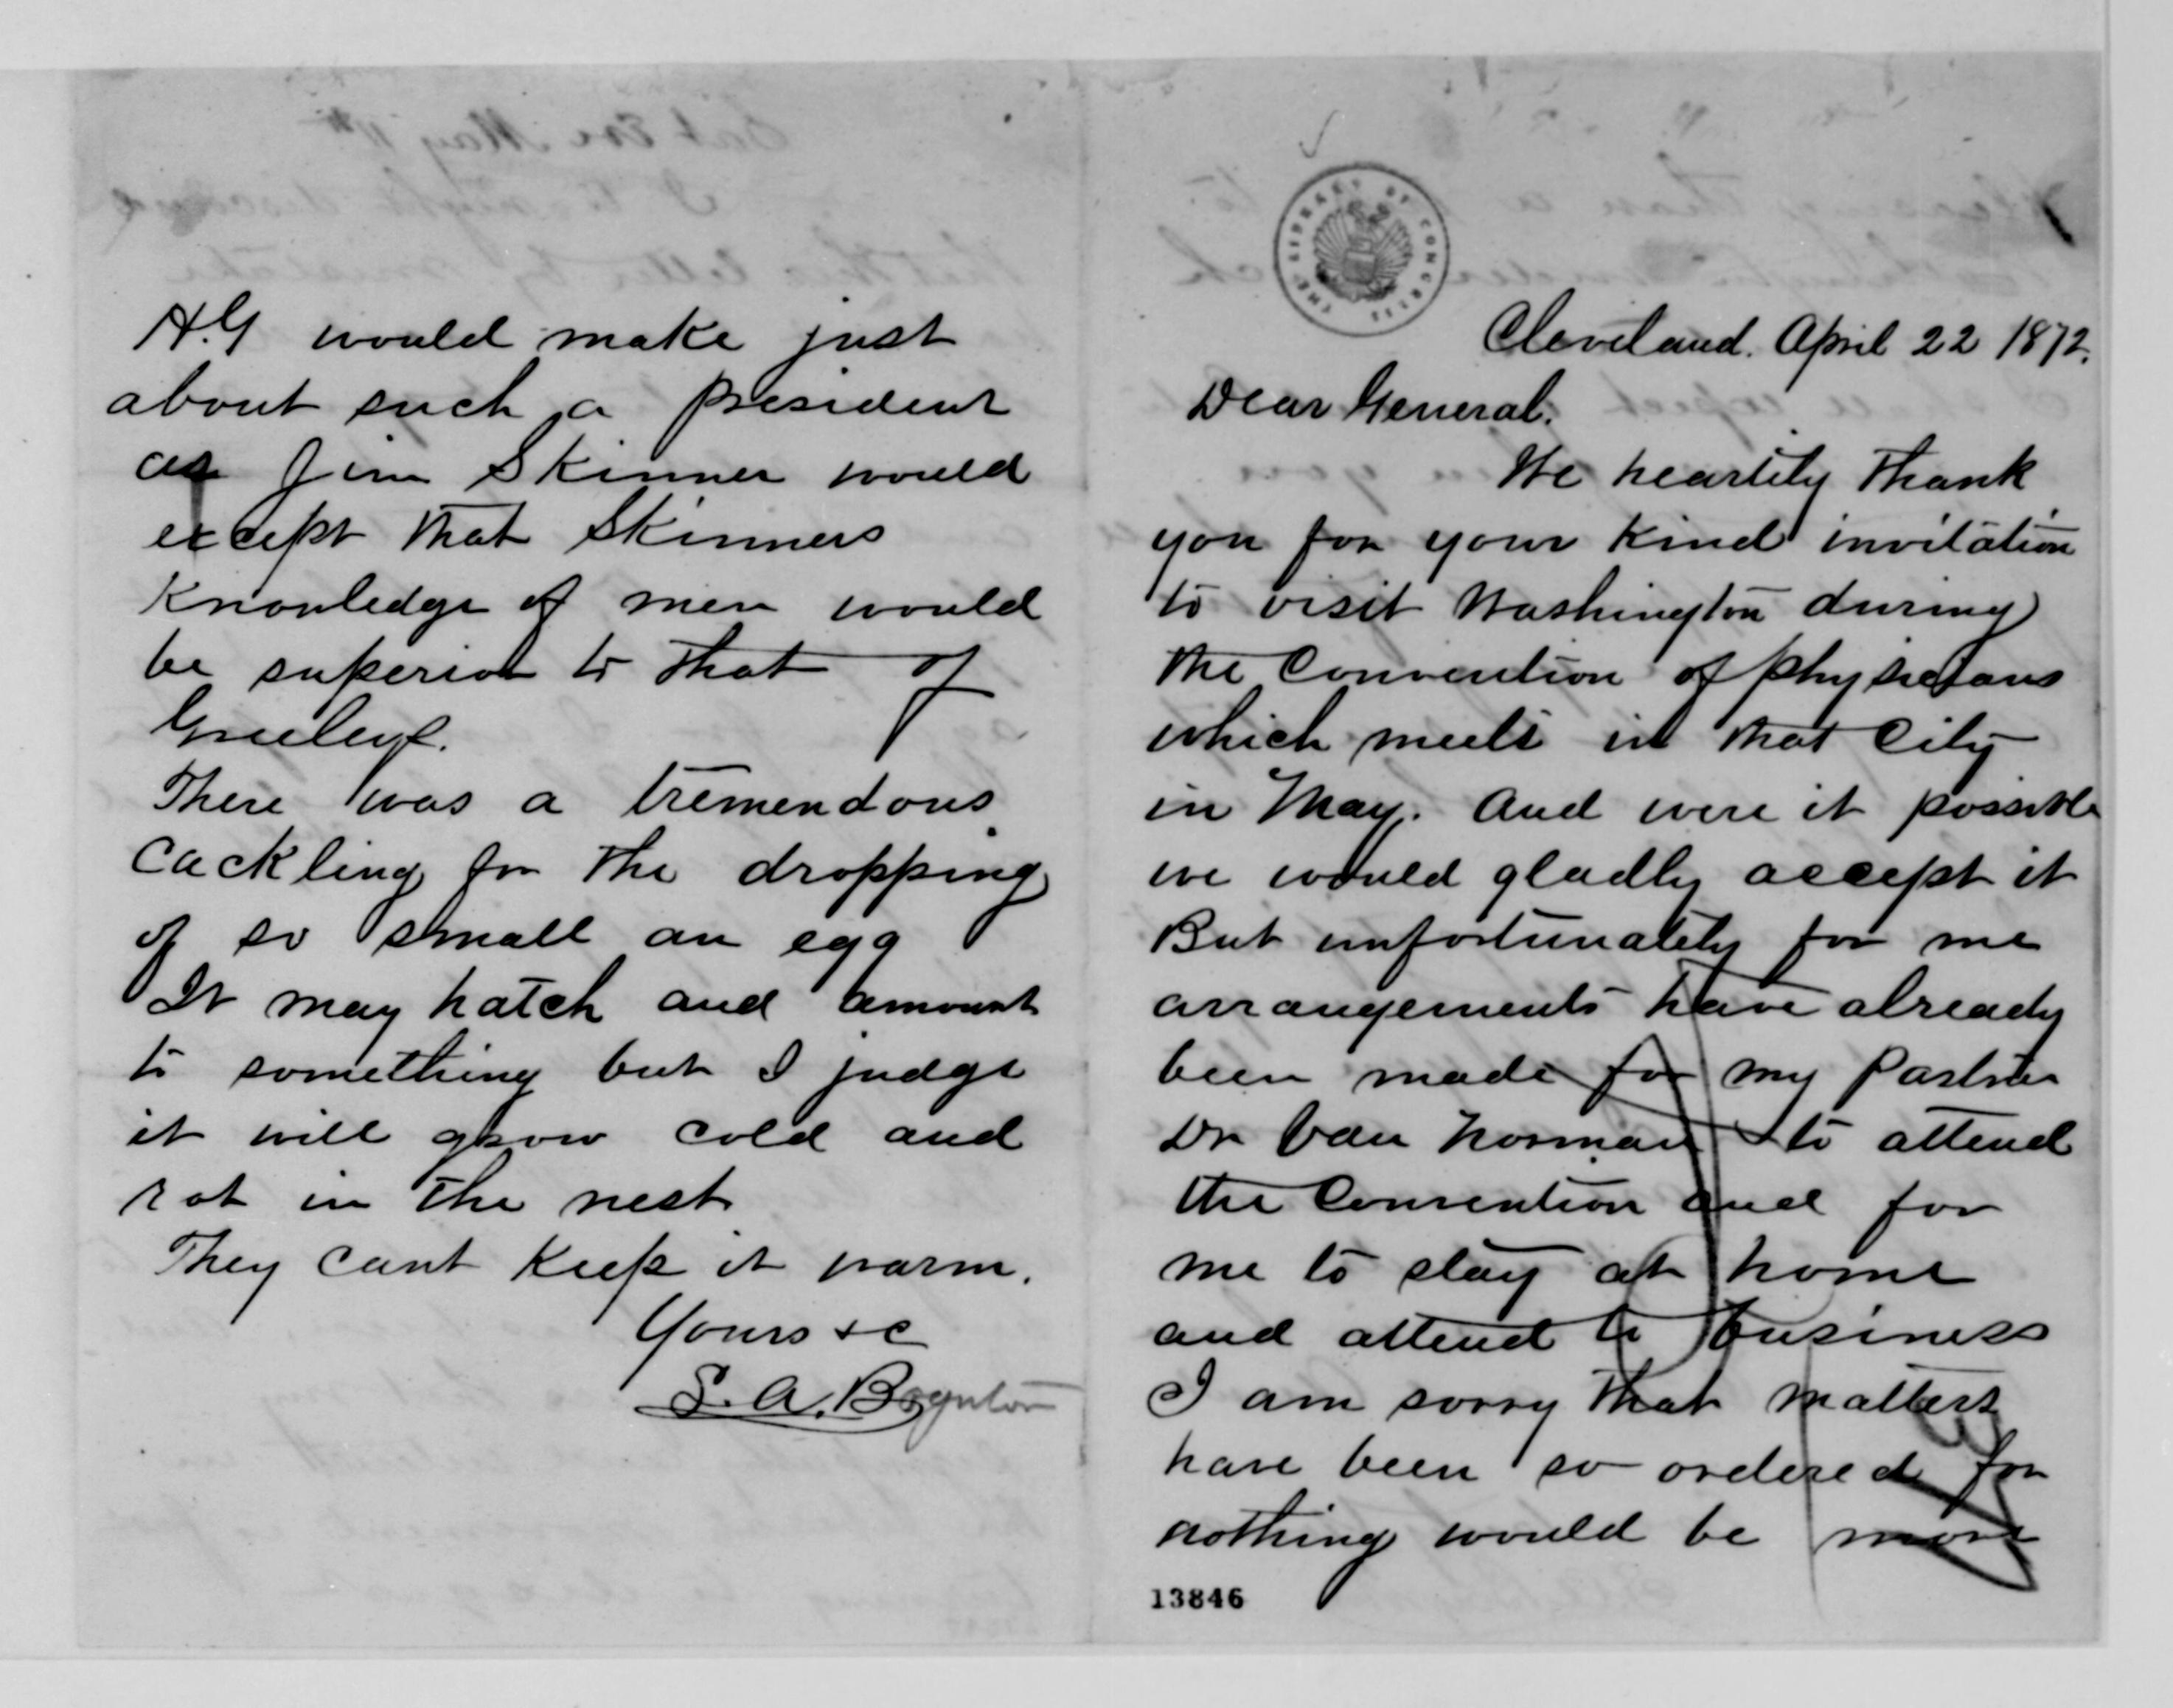 H.G would make just
about such a president
as Jim Skinner would
except that Skinners
Knowledge of men would
be superior to that of
Greeley.
There was a tremendous
Cackling for the dropping
of so small an egg
It may hatch and amount
to something but I judge
it will grow cold and
rot in the nest
They cant Keep it warm.
Yours &c
S. A. Boynton
THE LIBRARY OF CONGRESS
Cleveland. April 22 1872.
Dear General.
We heartily Thank
you for your Kind invitation
to visit Washington during
the Convention of physicians
which meets in that City
in May. And were it possible
we would gladly accept it
But unfortunately for me
arrangements have already
been made for my Partner
Dr Van Norman to attend
the Convention and for
me to stay at home
and attend to business
I am sorry that matters
have been so ordered for
nothing would be more
13846